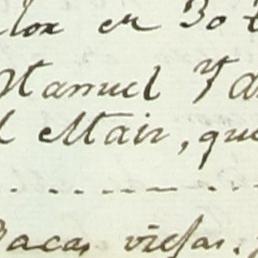 lox en 30
Manuel Ya
l Mair, que
Bacas viejas.